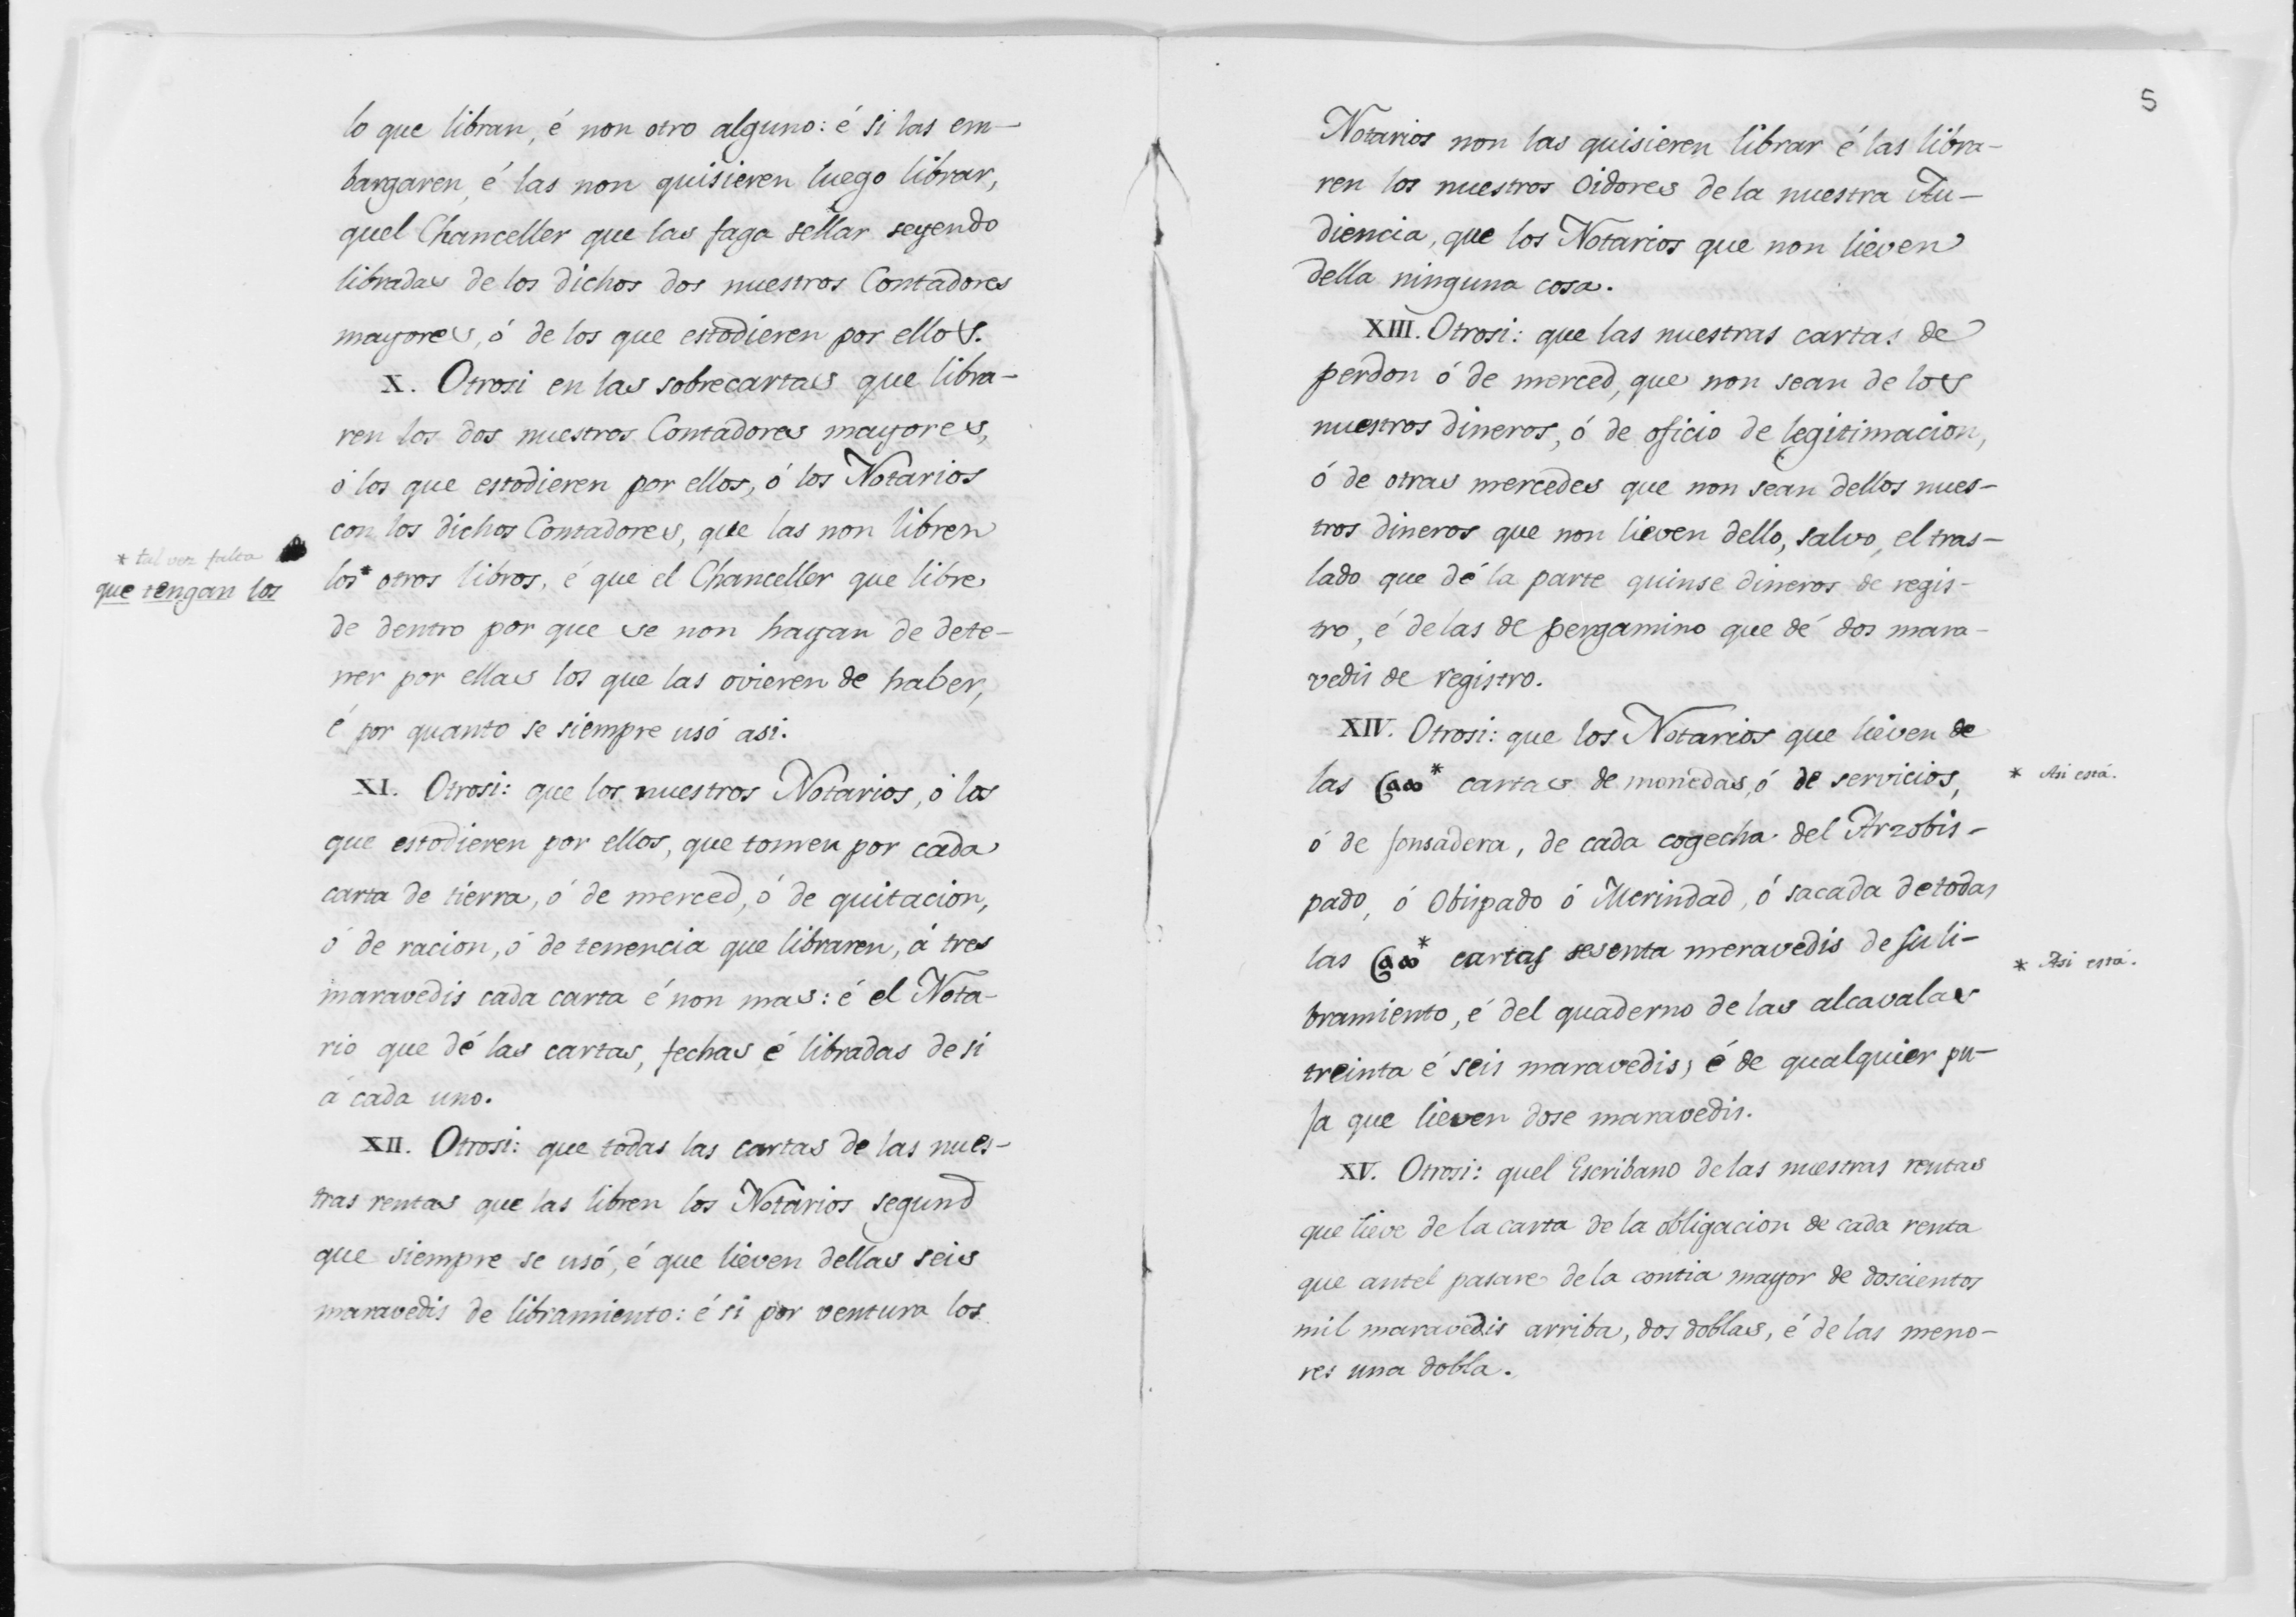 lo que libran, é non otro alguno: é si las em-
bargaren, é las non quisieren luego librar,
quel Chanceller que las faga sellar seyendo
libradas de los dichos dos nuestros Contadores
mayores, ó de los que estodieren por ellos.
X. Otrosi en las sobrecartas que libra-
ren los dos nuestros Contadores mayores,
ó los que estodieren por ellos, ó los Notarios
con los dichos Contadores, que las non libren
* tal vez falta
que tengan los
los* otros libros, é que el Chanceller que libre
de dentro por que se non hayan de dete-
ner por ellas los que las ovieren de haber,
é por quanto se siempre usó asi.
XI. Otrosi: que los nuestros Notarios, ó los
que estodieren por ellos, que tomen por cada
carta de tierra, ó de merced, ó de quitacion,
ó de racion, ó de tenencia que libraren, á tres
maravedis cada carta é non mas: é el Nota-
rio que dé las cartas, fechas é libradas de si
á cada uno.
XII. Otrosi: que todas las cartas de las nues-
tras rentas que las libren los Notarios segund
que siempre se usó, é que lieven dellas seis
maravedis de libramiento: é si por ventura los
5
Notarios non las quisieren librar é las libra-
ren los nuestros Oidores de la nuestra Au-
diencia, que los Notarios que non lieven
della ninguna cosa.
XIII. Otrosi: que las nuestras cartas de
perdon ó de merced, que non sean de los
nuestros dineros, ó de oficio de legitimacion,
ó de otras mercedes que non sean dellos nues-
tros dineros que non lieven dello, salvo, el tras-
lado que dé la parte quinse dineros de regis-
tro, é de las de pergamino que dé dos mara-
vedis de registro.
XIV. Otrosi: que los Notarios que lieven de
las * cartas de monedas, ó de servicios,
* Asi está.
ó de fonsadera, de cada cogecha del Arzobis-
pado, ó Obispado ó Merindad, ó sacada de todas
las * cartas sesenta meravedis de su li-
* Asi está.
bramiento, é del quaderno de las alcavalas
treinta é seis maravedis, é de qualquier pu-
ja que lieven dose maravedis.
XV. Otrosi: quel Escribano de las nuestras rentas
que lieve de la carta de la obligacion de cada renta
que antel pasare de la contia mayor de doscientos
mil maravedis arriba, dos doblas, é de las meno-
res una dobla.